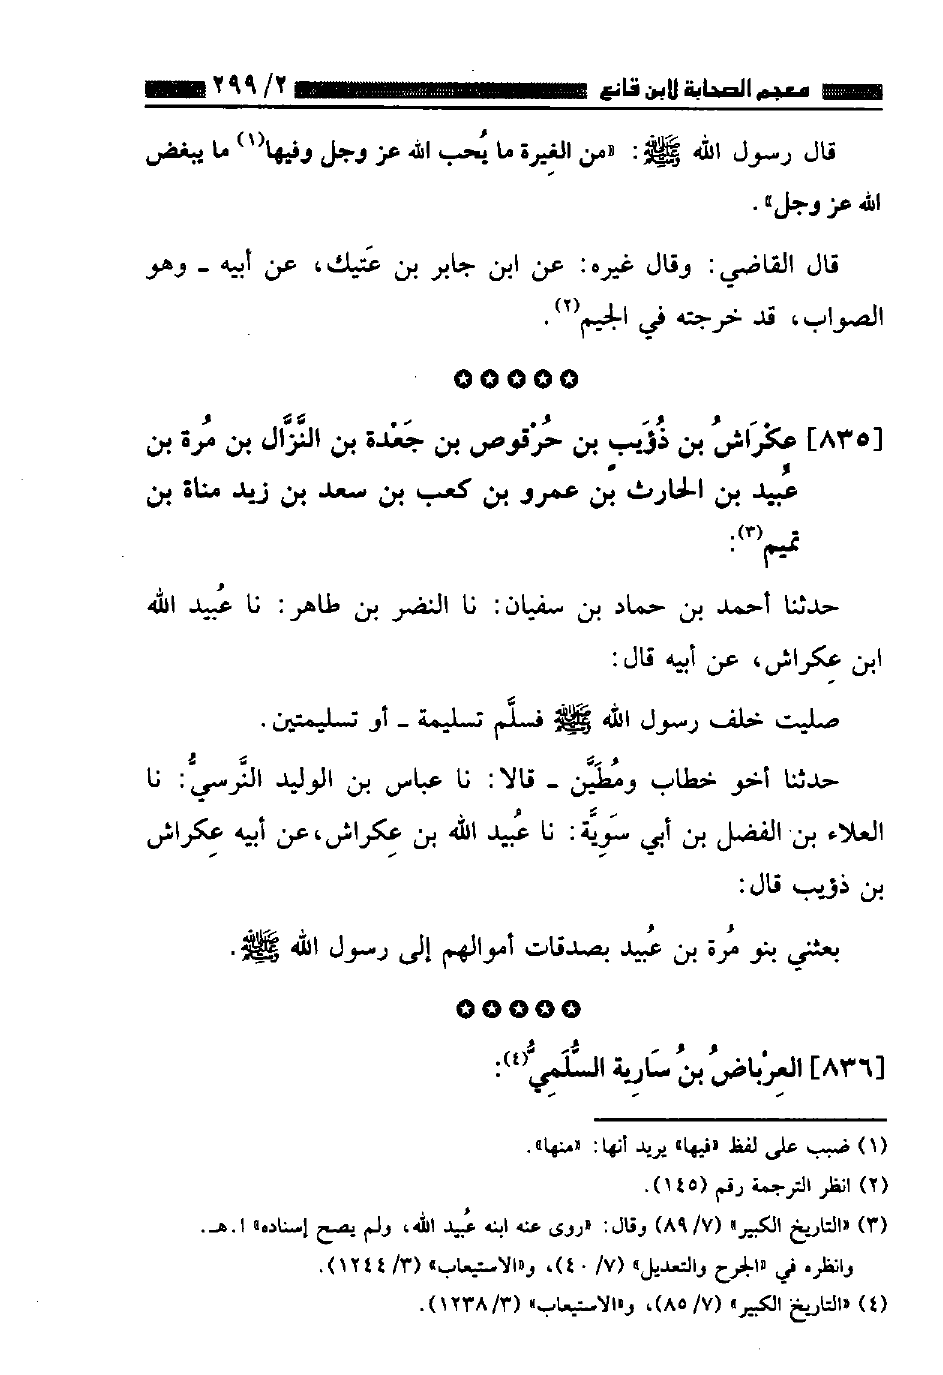 معجم الصحابة لابن قانع ٢/ ٢٩٩
قال رسول الله ﷺ: «من الغِيرة ما يُحب الله عز وجل وفيها(١) ما يبغض
الله عز وجل».
قال القاضي: وقال غيره: عن ابن جابر بن عَتيك، عن أبيه ـ وهو
الصواب، قد خرجته في الجيم(٢).
[٨٣٥] عكْرَاشُ بن ذُؤَيبٍ بن حُرْقوص بن جَعْدة بن النَّزَّال بن مُرة بن
عُبيد بن الحارث بن عمرو بن كعب بن سعد بن زيد مناة بن
تميم(٣):
حدثنا أحمد بن حماد بن سفيان: نا النضر بن طاهر: نا عُبيد الله
ابن عِكراش، عن أبيه قال:
صليت خلف رسول الله ﷺ فسلَّم تسليمة ـ أو تسليمتين.
حدثنا أخو خطاب ومُطَيَّن ـ قالا: نا عباس بن الوليد النَّرسيُّ: نا
العلاء بن الفضل بن أبي سَوِيَّة: نا عُبيد الله بن عِكراش، عن أبيه عِكراش
بن ذؤيب قال:
بعثني بنو مُرة بن عُبيد بصدقات أموالهم إلى رسول الله ﷺ.
[٨٣٦] العِرْباضُ بنُ سَارِية السُّلَمِيُّ(٤):
(١) ضبب على لفظ «فيها» يريد أنها: «منها».
(٢) انظر الترجمة رقم (١٤٥).
(٣) «التاريخ الكبير» (٧/ ٨٩) وقال: «روى عنه ابنه عُبيد الله، ولم يصح إسناده» ا.هـ.
وانظره في «الجرح والتعديل» (٧/ ٤٠)، و«الاستيعاب» (٣/ ١٢٤٤).
(٤) «التاريخ الكبير» (٧/ ٨٥)، و«الاستيعاب» (٣/ ١٢٣٨).